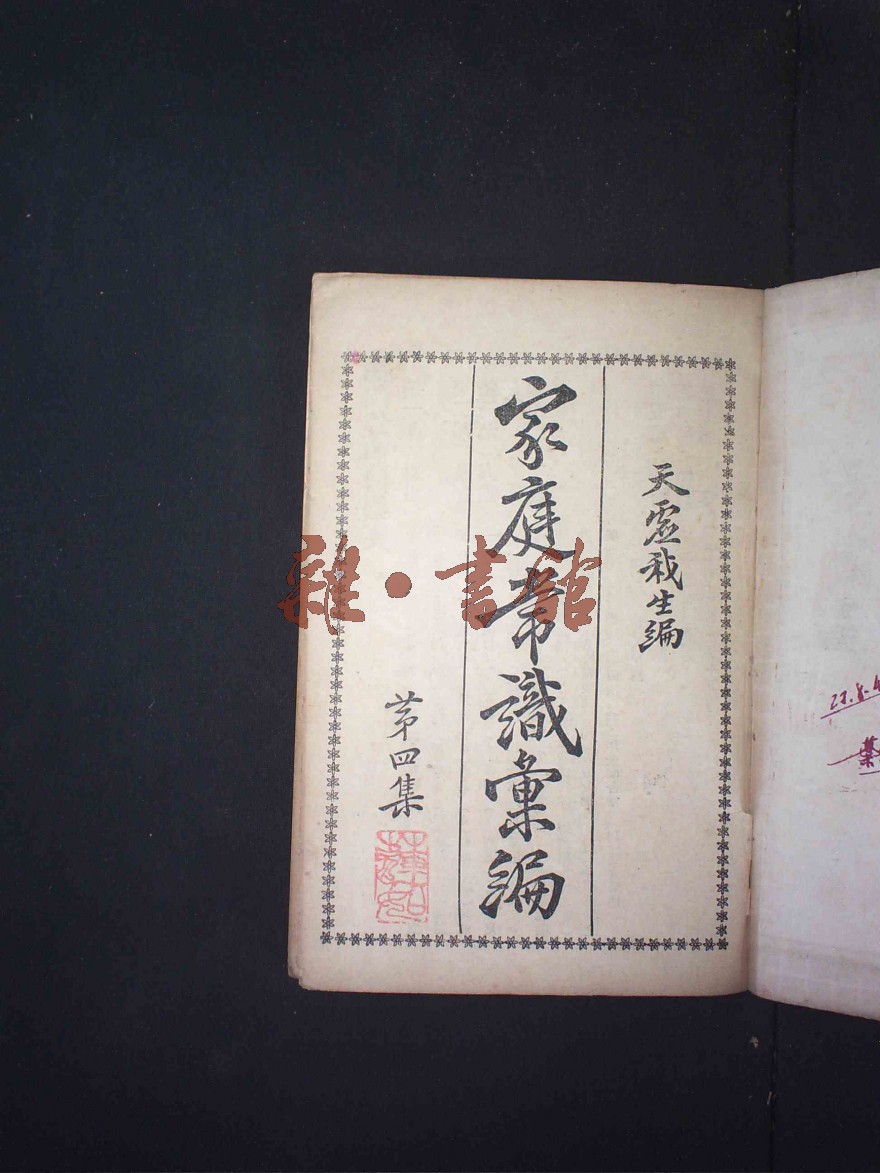 天虛我生編
家庭常識彙編
第四集
雜·書館